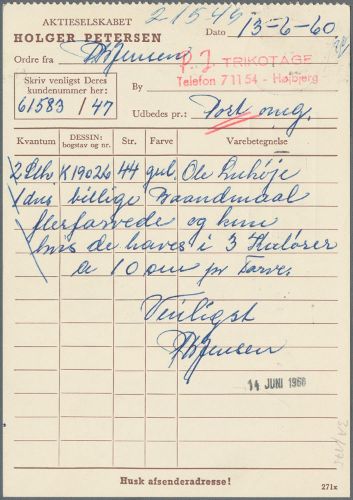 21549
AKTIESELSKABET
HOLGER PETERSEN
Dato 13-6-60
Ordre fra Jensen
P. J. TRIKOTAGE
Telefon 71154 - Højbjerg
Skriv venligst Deres
kundenummer her:
61583/47
By
Udbedes pr.: Post omg.
Kvantum DESSIN: bogstav og nr. Str. Farve Varebetegnelse
2 Stk K19026 44 gul. Ole Luköje
1 dus billige Baandmaal
flerfarvede og kun
hvis de haves i 3 Kulører
a 10 cm pr Farve.
Venligst
Jensen
14 JUNI 1960
Husk afsenderadresse!
271x